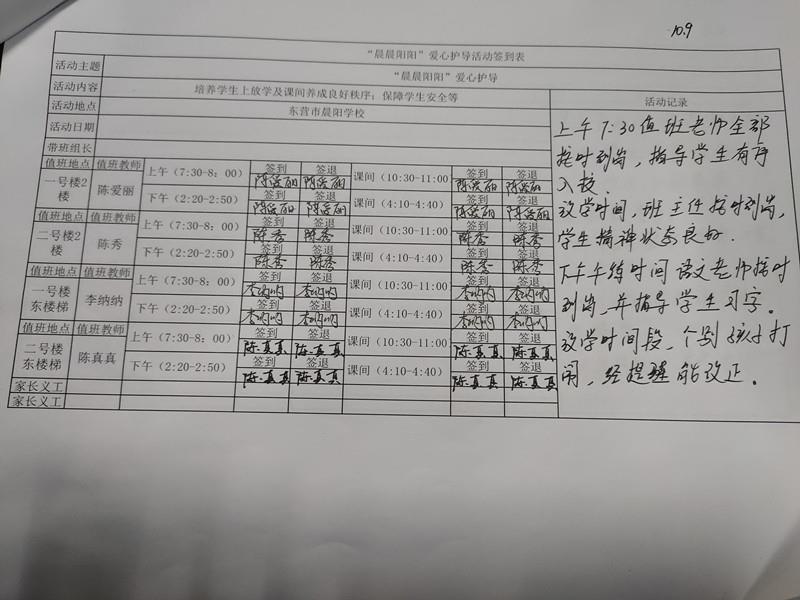 10.9
“晨晨阳阳”爱心护导活动签到表
活动主题 “晨晨阳阳”爱心护导
活动内容 培养学生上放学及课间养成良好秩序；保障学生安全等 活动记录
活动地点 东营市晨阳学校
活动日期
带班组长
值班地点 值班教师 上午（7:30-8：00） 签到 签退 课间（10:30-11:00 签到 签退
一号楼2楼 陈爱丽 陈爱丽 陈爱丽 陈爱丽 陈爱丽
下午（2:20-2:50） 签到 签退 课间（4:10-4:40） 签到 签退
陈爱丽 陈爱丽 陈爱丽 陈爱丽
值班地点 值班教师 上午（7:30-8：00） 签到 签退 课间（10:30-11:00 签到 签退
二号楼2楼 陈秀 陈秀 陈秀 陈秀 陈秀
下午（2:20-2:50） 签到 签退 课间（4:10-4:40） 签到 签退
陈秀 陈秀 陈秀 陈秀
值班地点 值班教师 上午（7:30-8：00） 签到 签退 课间（10:30-11:00 签到 签退
一号楼东楼梯 李纳纳 李纳纳 李纳纳 李纳纳 李纳纳
下午（2:20-2:50） 签到 签退 课间（4:10-4:40） 签到 签退
李纳纳 李纳纳 李纳纳 李纳纳
值班地点 值班教师 上午（7:30-8：00） 签到 签退 课间（10:30-11:00 签到 签退
二号楼东楼梯 陈真真 陈真真 陈真真 陈真真 陈真真
下午（2:20-2:50） 签到 签退 课间（4:10-4:40） 签到 签退
陈真真 陈真真 陈真真 陈真真
家长义工
家长义工
上午7:30值班老师全部
按时到岗，指导学生有序
入校.
放学时间，班主任按时到岗，
学生精神状态良好.
下午午练时间语文老师按时
到岗，并指导学生习字。
放学时间段，个别孩子打
闹，经提醒能改正。